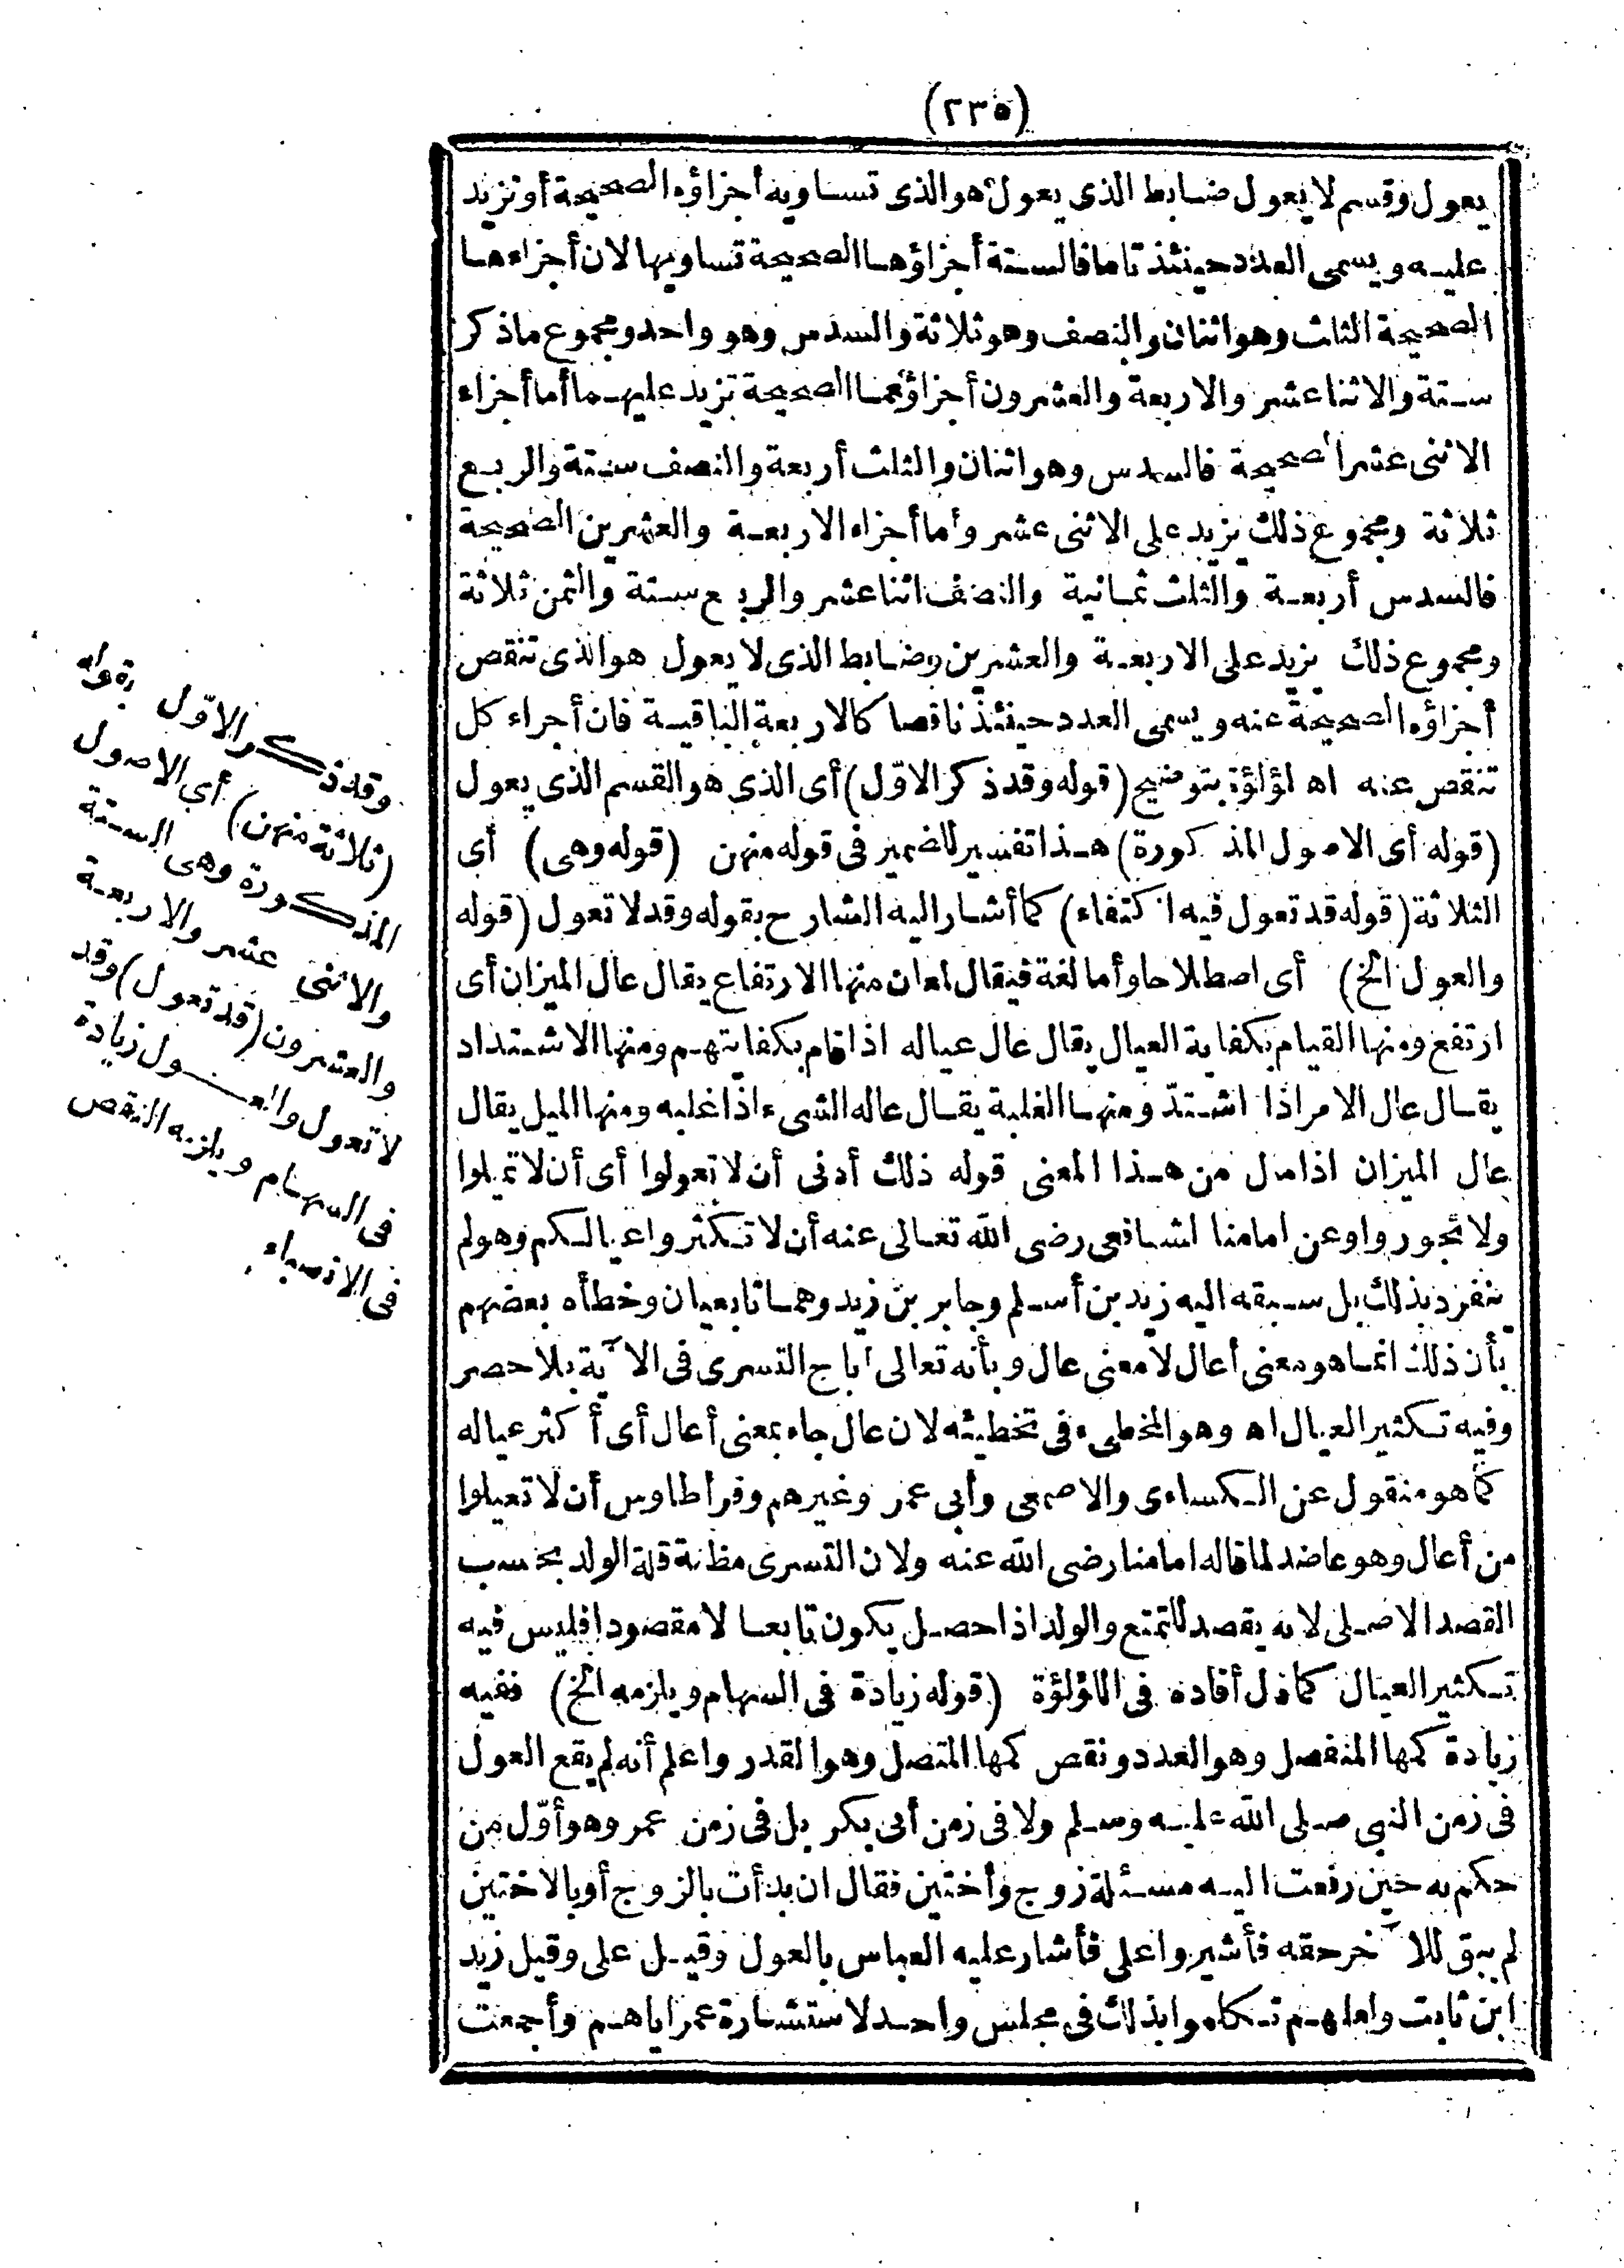 (٢٣٥)
يعول وقسم لا يعول ضابط الذى يعول هو الذى تساويه أجزاؤه الصحيحة أو تزيد
عليه ويسمى العدد حينئذ تاما فالستة أجزاؤها الصحيحة تساويها لان أجزاءها
الصحيحة الثلث وهو اثنان والنصف وهو ثلاثة والسدس وهو واحد ومجموع ما ذكر
ستة والاثنا عشر والاربعة والعشرون أجزاؤهما الصحيحة تزيد عليهما أما أجزاء
الاثنى عشر الصحيحة فالسدس وهو اثنان والثلث أربعة والنصف ستة والربع
ثلاثة ومجموع ذلك يزيد على الاثنى عشر وأما أجزاء الاربعة والعشرين الصحيحة
فالسدس أربعة والثلث ثمانية والنصف اثنا عشر والربع ستة والثمن ثلاثة
ومجموع ذلك يزيد على الاربعة والعشرين وضابط الذى لا يعول هو الذى تنقص
أجزاؤه الصحيحة عنه ويسمى العدد حينئذ ناقصا كالاربعة الباقية فان أجزاء كل
تنقص عنه اه لؤلؤة بتوضيح (قوله وقد ذكر الاوّل) أى الذى هو القسم الذى يعول
(قوله أى الاصول المذكورة) هذا تفسير للضمير فى قوله منهن (قوله وهى) أى
الثلاثة (قوله قد تعول فيه اكتفاء) كما أشار اليه الشارح بقوله وقد لا تعول (قوله
والعول الخ) أى اصطلاحا وأما لغة فيقال لمعان منها الارتفاع يقال عال الميزان أى
ارتفع ومنها القيام بكفاية العيال يقال عال عياله اذا قام بكفايتهم ومنها الاشتداد
يقال عال الامر اذا اشتدّ ومنها الغلبة يقال عاله الشىء اذا غلبه ومنها الميل يقال
عال الميزان اذا مال من هذا المعنى قوله ذلك أدنى أن لا تعولوا أى أن لا تميلوا
ولا تجوروا وعن امامنا الشافعى رضى الله تعالى عنه أن لا تكثروا عيالكم وهو لم
ينفرد بذلك بل سبقه اليه زيد بن أسلم وجابر بن زيد وهما تابعيان وخطأه بعضهم
بأن ذلك انما هو معنى أعال لا معنى عال وبأنه تعالى أباح التسرى فى الآية بلا حصر
وفيه تكثير العيال اه وهو المخطىء فى تخطيئه لان عال جاء بمعنى أعال أى أكثر عياله
كما هو منقول عن الكساءى والاصمعى وأبى عمر وغيرهم وقرأ طاوس أن لا تعيلوا
من أعال وهو عاضد لما قاله امامنا رضى الله عنه ولان التسرى مظنة قلة الولد بحسب
القصد الاصلى لانه يقصد للتمتع والولد اذا حصل يكون تابعا لا مقصودا فليس فيه
تكثير العيال كما أفاده فى اللؤلؤة (قوله زيادة فى السهام ويلزمه الخ) ففيه
زيادة كمها المنفصل وهو العدد ونقص كمها المتصل وهو القدر واعلم أنه لم يقع العول
فى زمن النبى صلى الله عليه وسلم ولا فى زمن أبى بكر بل فى زمن عمر وهو أوّل من
حكم به حين رفعت اليه مسئلة زوج وأختين فقال ان بدأت بالزوج أو بالاختين
لم يبق للآخر حقه فأشيروا على فأشار عليه العباس بالعول وقيل على وقيل زيد
ابن ثابت ولعلهم تكلموا بذلك فى مجلس واحد لاستشارة عمر اياهم وأجمعت
وقد ذكر الاوّل بقوله
(ثلاثة منهن) أى الاصول
المذكورة وهى الستة
والاثنى عشر والاربعة
والعشرون (قد تعول) وقد
لا تعول والعول زيادة
فى السهام ويلزمه النقص
فى الانصباء